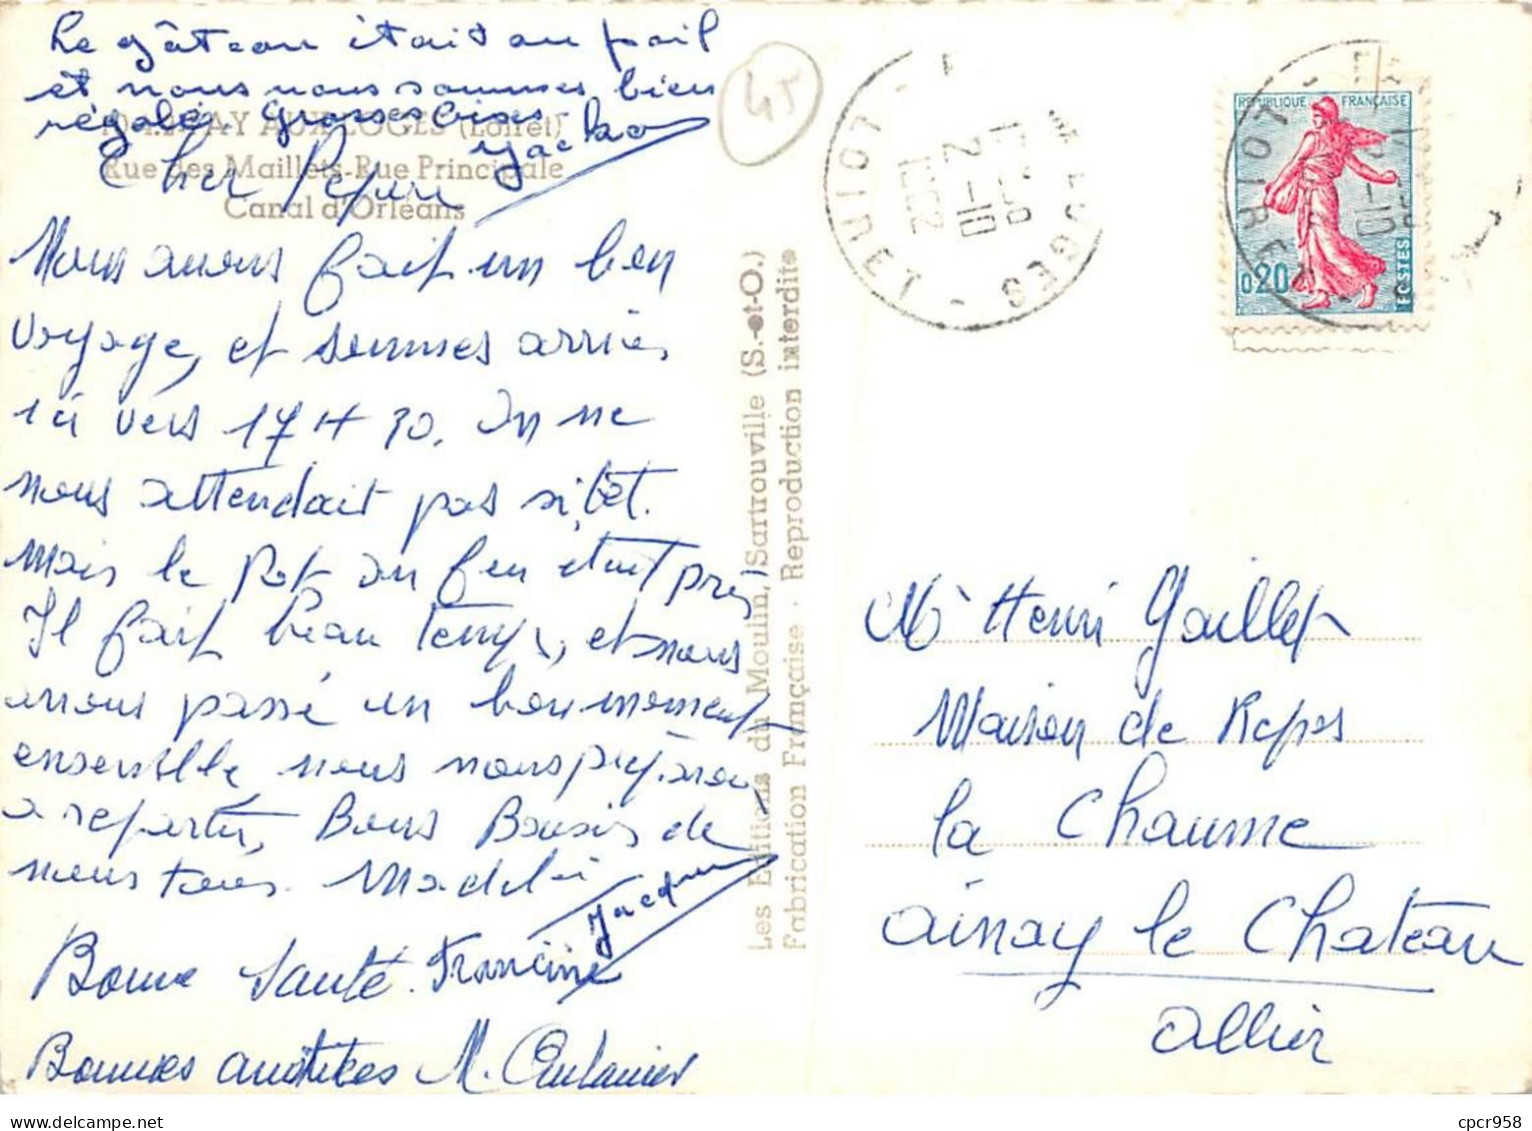 Le gâteau était au poil
et nous nous sommes bien
régalés. Grosses bises
Jacko
AUX LOGES (Loiret)
Rue des Maillets-Rue Principale
Canal d'Orléans
Cher Pépère
Nous avons fait un bon
voyage, et sommes arrivés
ici vers 17 H 30. On ne
nous attendait pas si tôt.
Mais le Pot au feu était près
Il fait beau temps, et nous
avons passé un bon moment
ensemble, nous nous préparons
a repartir, Bons Baisers de
nous tous. Jacques
Bonne Santé. Francine
Bonnes amitiées M.
Les Editions du Moulin, Sartrouville (S.-et-O.)
Fabrication Française - Reproduction interdite
45
LOIRET
LOGES
17 H 30
2-10
REPUBLIQUE FRANÇAISE
0,20
POSTES
LOIRET
2-10
Mr Henri Gaillet
Maison de Repos
la Chaume
ainay le Chateau
allier
cpcr958